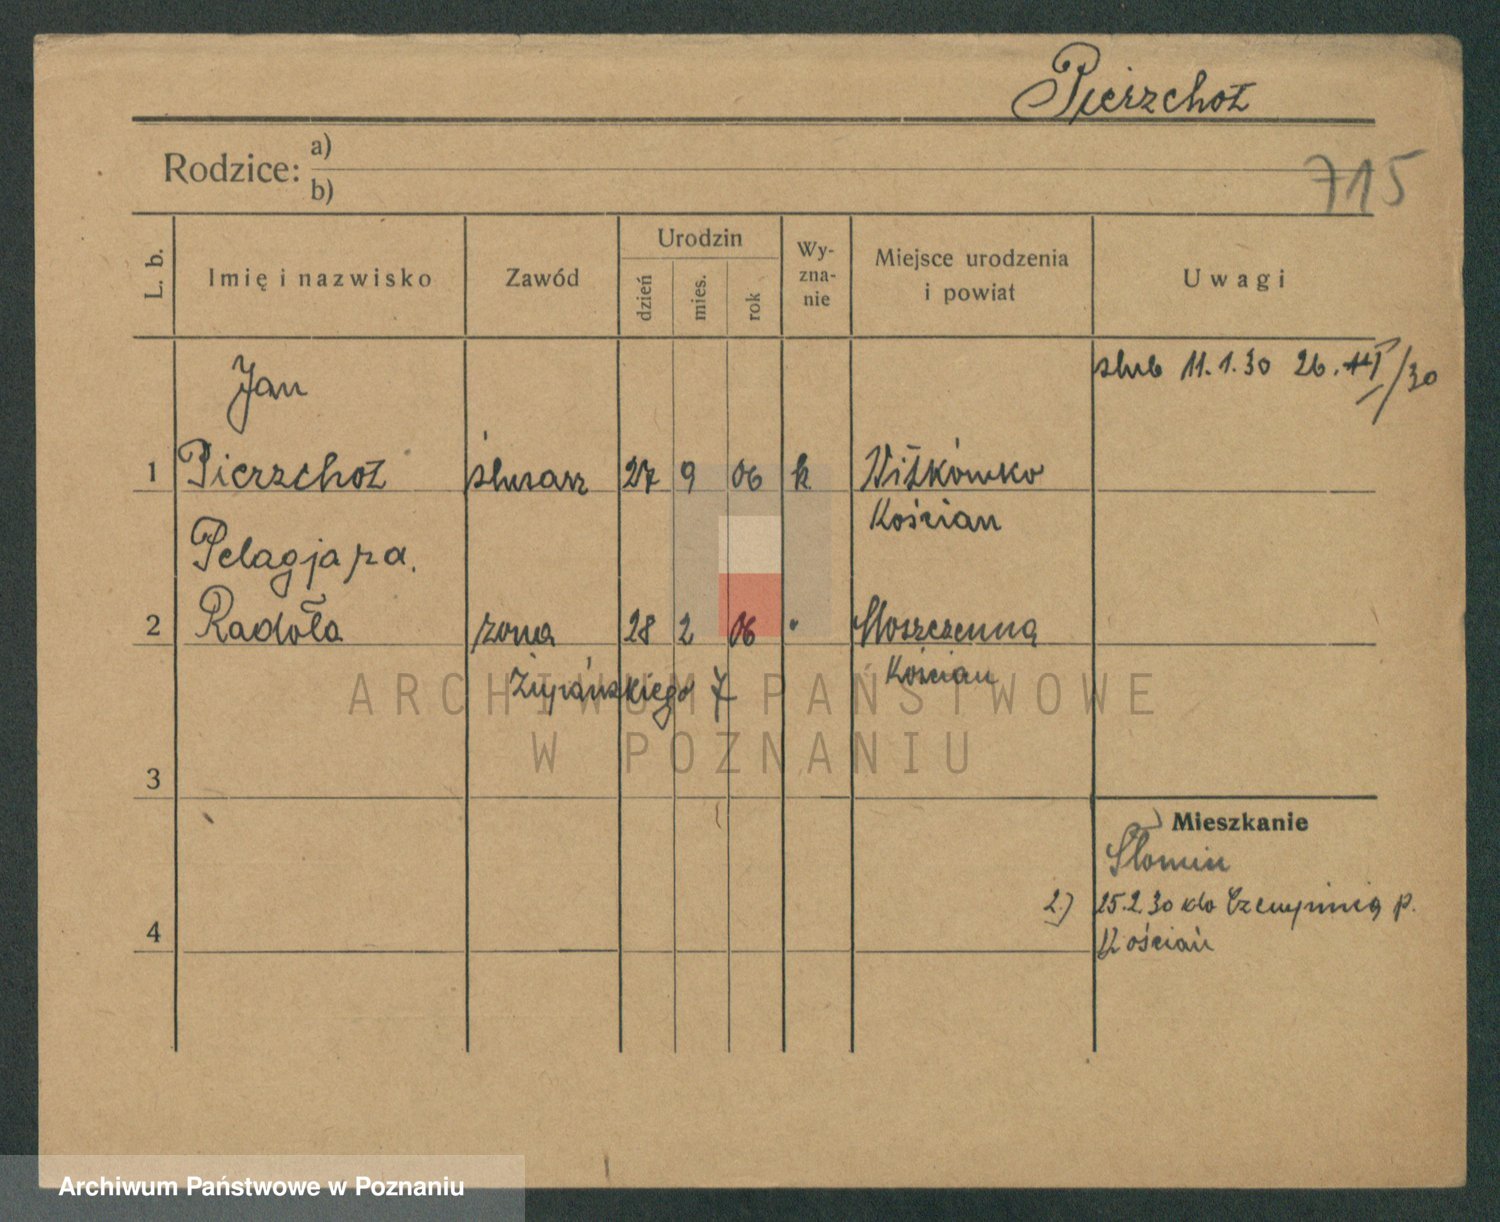 Pierzchoł
Rodzice: a)
b)
715
L. b.
Imię i nazwisko
Zawód
Urodzin
dzień
mies.
rok
Wy-
zna-
nie
Miejsce urodzenia
i powiat
Uwagi
Jan
ślub 11.1.30 26. /30
1 Pierzchoł ślusarz 27 9 06 k
Kościan
Pelagja
2 Radoła żona 28 2 06 "
Kościan
Żupańskiego 7
ARCHIWUM PAŃSTWOWE
W POZNANIU
3
Mieszkanie
Słomin
2.) 25.2.30 do Czempinia p.
4 Kościan
Archiwum Państwowe w Poznaniu